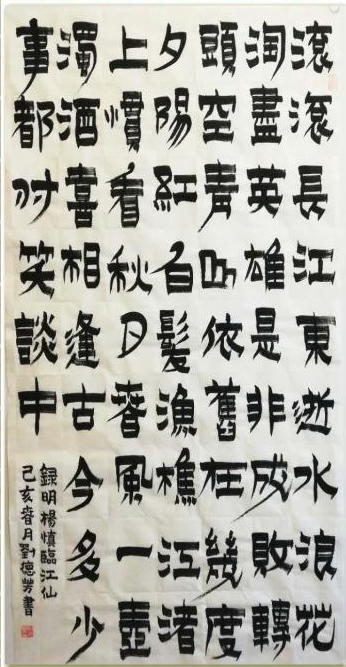 滾滾長江東逝水浪花
淘盡英雄是非成敗轉
頭空青山依舊在幾度
夕陽紅白髮漁樵江渚
上慣看秋月春風一壺
濁酒喜相逢古今多少
事都付笑談中
録明楊慎臨江仙
己亥春月劉德芳書